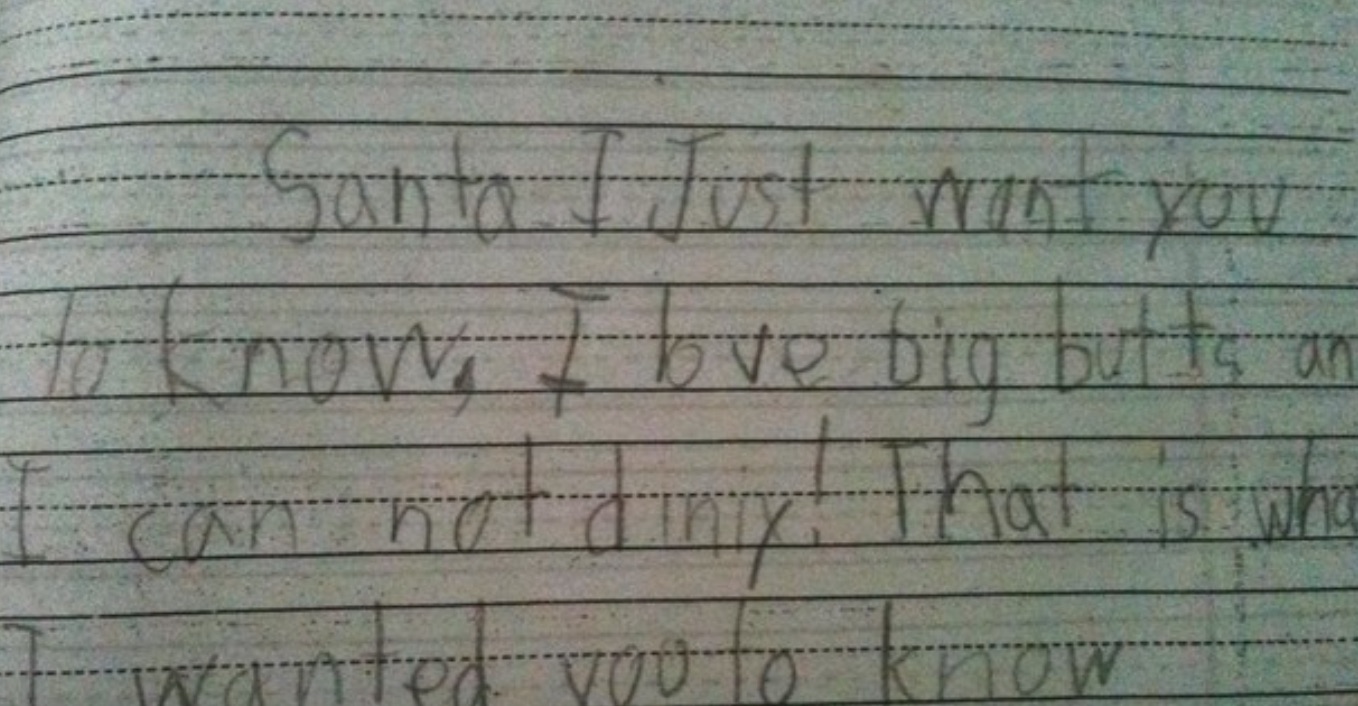 Santa I Just want you
to know, I love big butts an
I can not diniy! That is wha
I wanted yoo to know